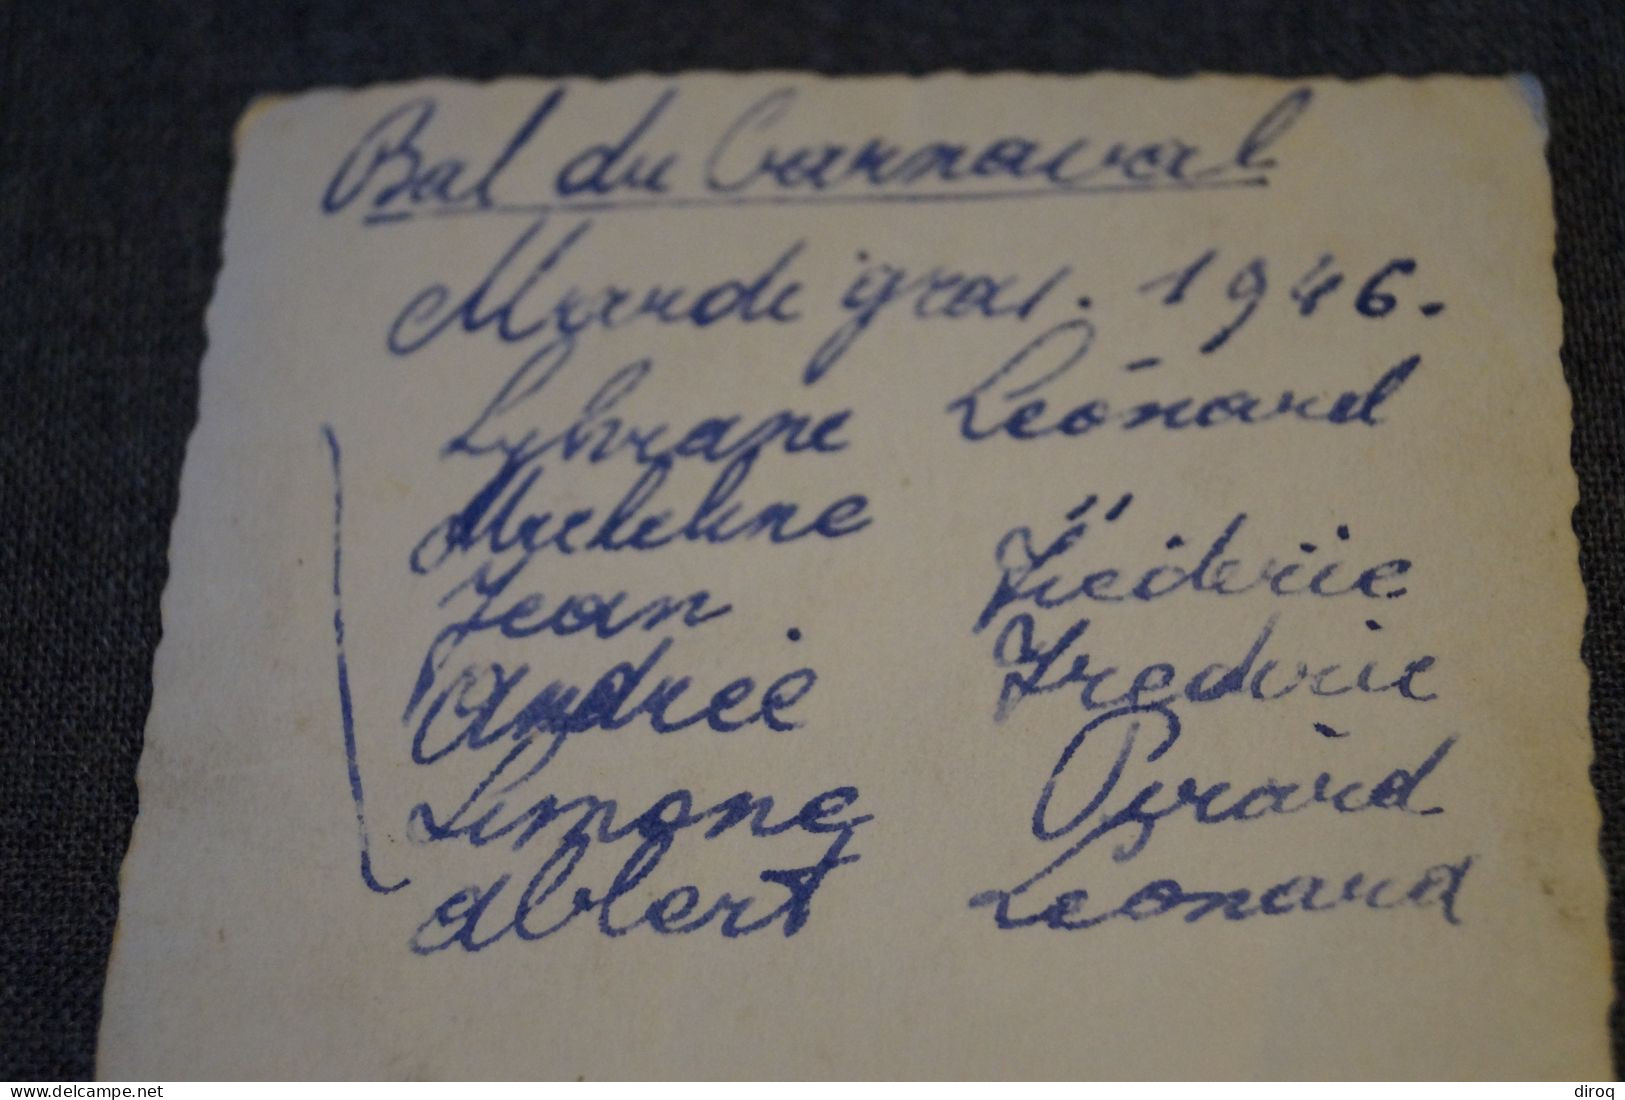 Bal du Carnaval
Mardi gras. 1946.
Sylviane Léonard
Micheline "
Jean Fréderic
Andrée Frederic
Simone Pirard
Albert Léonard
www.delcampe.net
diroq